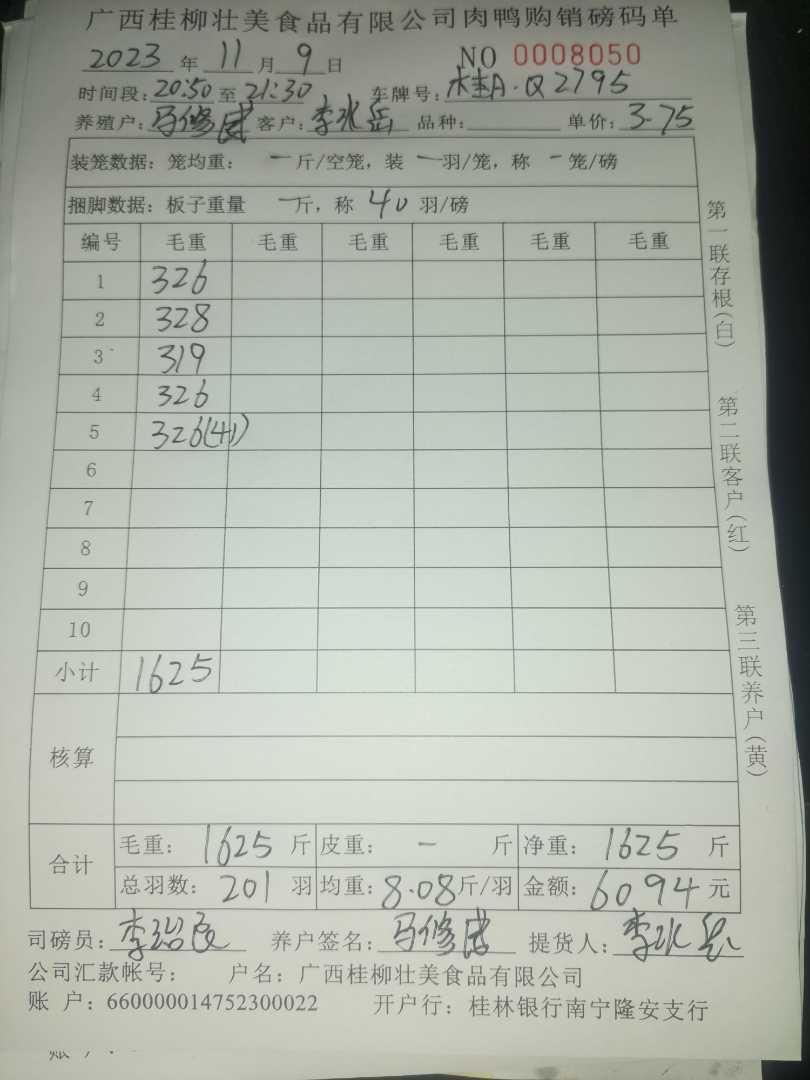 广西桂柳壮美食品有限公司肉鸭购销磅码单
2023 年 11 月 9 日 NO 0008050
时间段: 20:50 至 21:30 车牌号: 桂A·Q2795
养殖户: 马修 客户: 李水岳 品种: 单价: 3.75
装笼数据: 笼均重: 一 斤/空笼, 装 一 羽/笼, 称 一 笼/磅
捆脚数据: 板子重量 一 斤, 称 40 羽/磅
编号 毛重 毛重 毛重 毛重 毛重 毛重
1 326
2 328
3 319
4 326
5 326(41)
6
7
8
9
10
小计 1625
核算
合计 毛重: 1625 斤 皮重: 一 斤 净重: 1625 斤
总羽数: 201 羽 均重: 8.08 斤/羽 金额: 6094 元
司磅员: 李 养户签名: 马修 提货人: 李水岳
公司汇款帐号: 户名: 广西桂柳壮美食品有限公司
账 户: 660000014752300022 开户行: 桂林银行南宁隆安支行
第一联存根(白)
第二联客户(红)
第三联养户(黄)